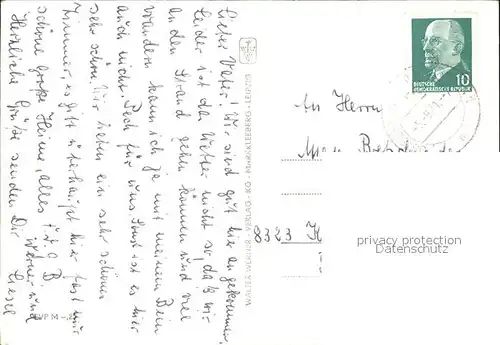 Lieber Vater! Wir sind gut hier angekommen.
Leider ist das Wetter nicht so, daß wir
an den Strand gehen können und viel
wandern kann ich ja mit meinem Bein
auch nicht. Pech für uns. Sonst ist es hier
sehr schön. Wir haben ein sehr schönes
Zimmer, es gibt überhaupt hier fast nur
schöne große Heime, alles F.D.G.B.
Herzliche Grüße senden Dir
Werner und
Liesel
M -
WALTER WERNER · VERLAG · KG · MARKKLEEBERG - LEIPZIG
10
DEUTSCHE
DEMOKRATISCHE REPUBLIK
An Herrn
Max
8323 K
privacy protection
Datenschutz